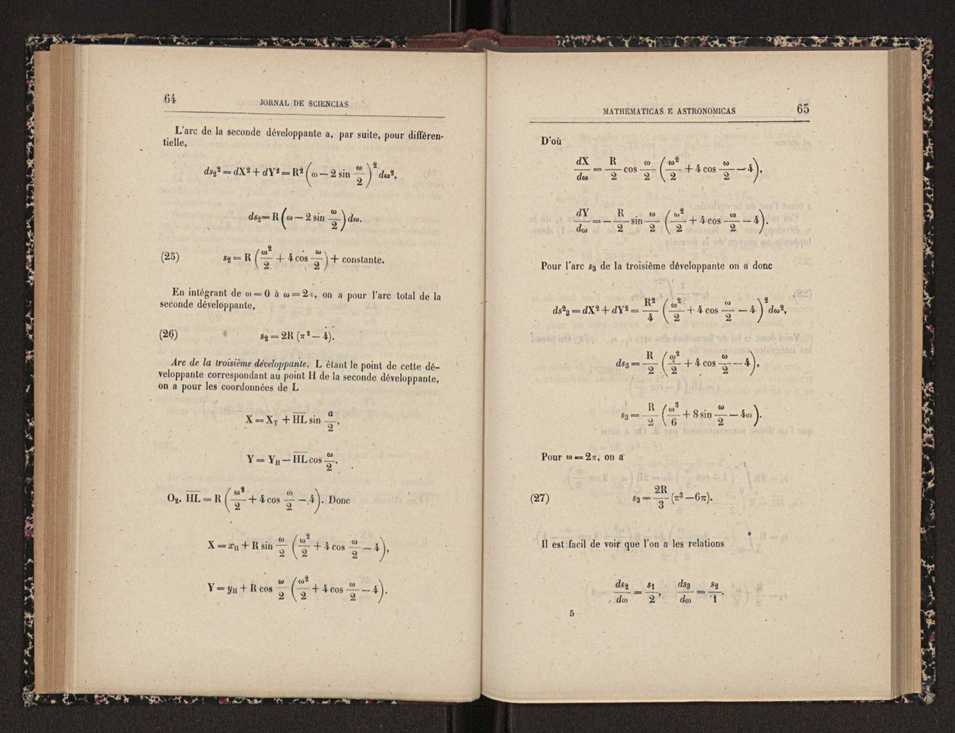 64 JORNAL DE SCIENCIAS
L'arc de la seconde développante a, par suite, pour différen-
tielle,
ds₂² = dX² + dY² = R² (ω — 2 sin ω/2)² dω²,
ds₂ = R (ω — 2 sin ω/2) dω.
(25) s₂ = R (ω²/2 + 4 cos ω/2) + constante.
En intégrant de ω = 0 à ω = 2π, on a pour l'arc total de la
seconde développante,
(26) s₂ = 2R (π² — 4).
Arc de la troisième développante. L étant le point de cette dé-
veloppante correspondant au point H de la seconde développante,
on a pour les coordonnées de L
X = X_T + HL sin a/2,
Y = Y_H — HL cos ω/2.
O₂. HL = R (ω²/2 + 4 cos ω/2 — 4). Donc
X = x_H + R sin ω/2 (ω²/2 + 4 cos ω/2 — 4),
Y = y_H + R cos ω/2 (ω²/2 + 4 cos ω/2 — 4).
MATHEMATICAS E ASTRONOMICAS 65
D'où
dX/dω = R/2 cos ω/2 (ω²/2 + 4 cos ω/2 — 4),
dY/dω = — R/2 sin ω/2 (ω²/2 + 4 cos ω/2 — 4).
Pour l'arc s₃ de la troisième développante on a donc
ds²₃ = dX² + dY² = R²/4 (ω²/2 + 4 cos ω/2 — 4)² dω²,
ds₃ = R/2 (ω²/2 + 4 cos ω/2 — 4),
s₃ = R/2 (ω³/6 + 8 sin ω/2 — 4ω).
Pour ω = 2π, on a
(27) s₃ = 2R/3 (π³ — 6π).
Il est facil de voir que l'on a les relations
ds₂/dω = s₁/2, ds₃/dω = s₂/1.
5